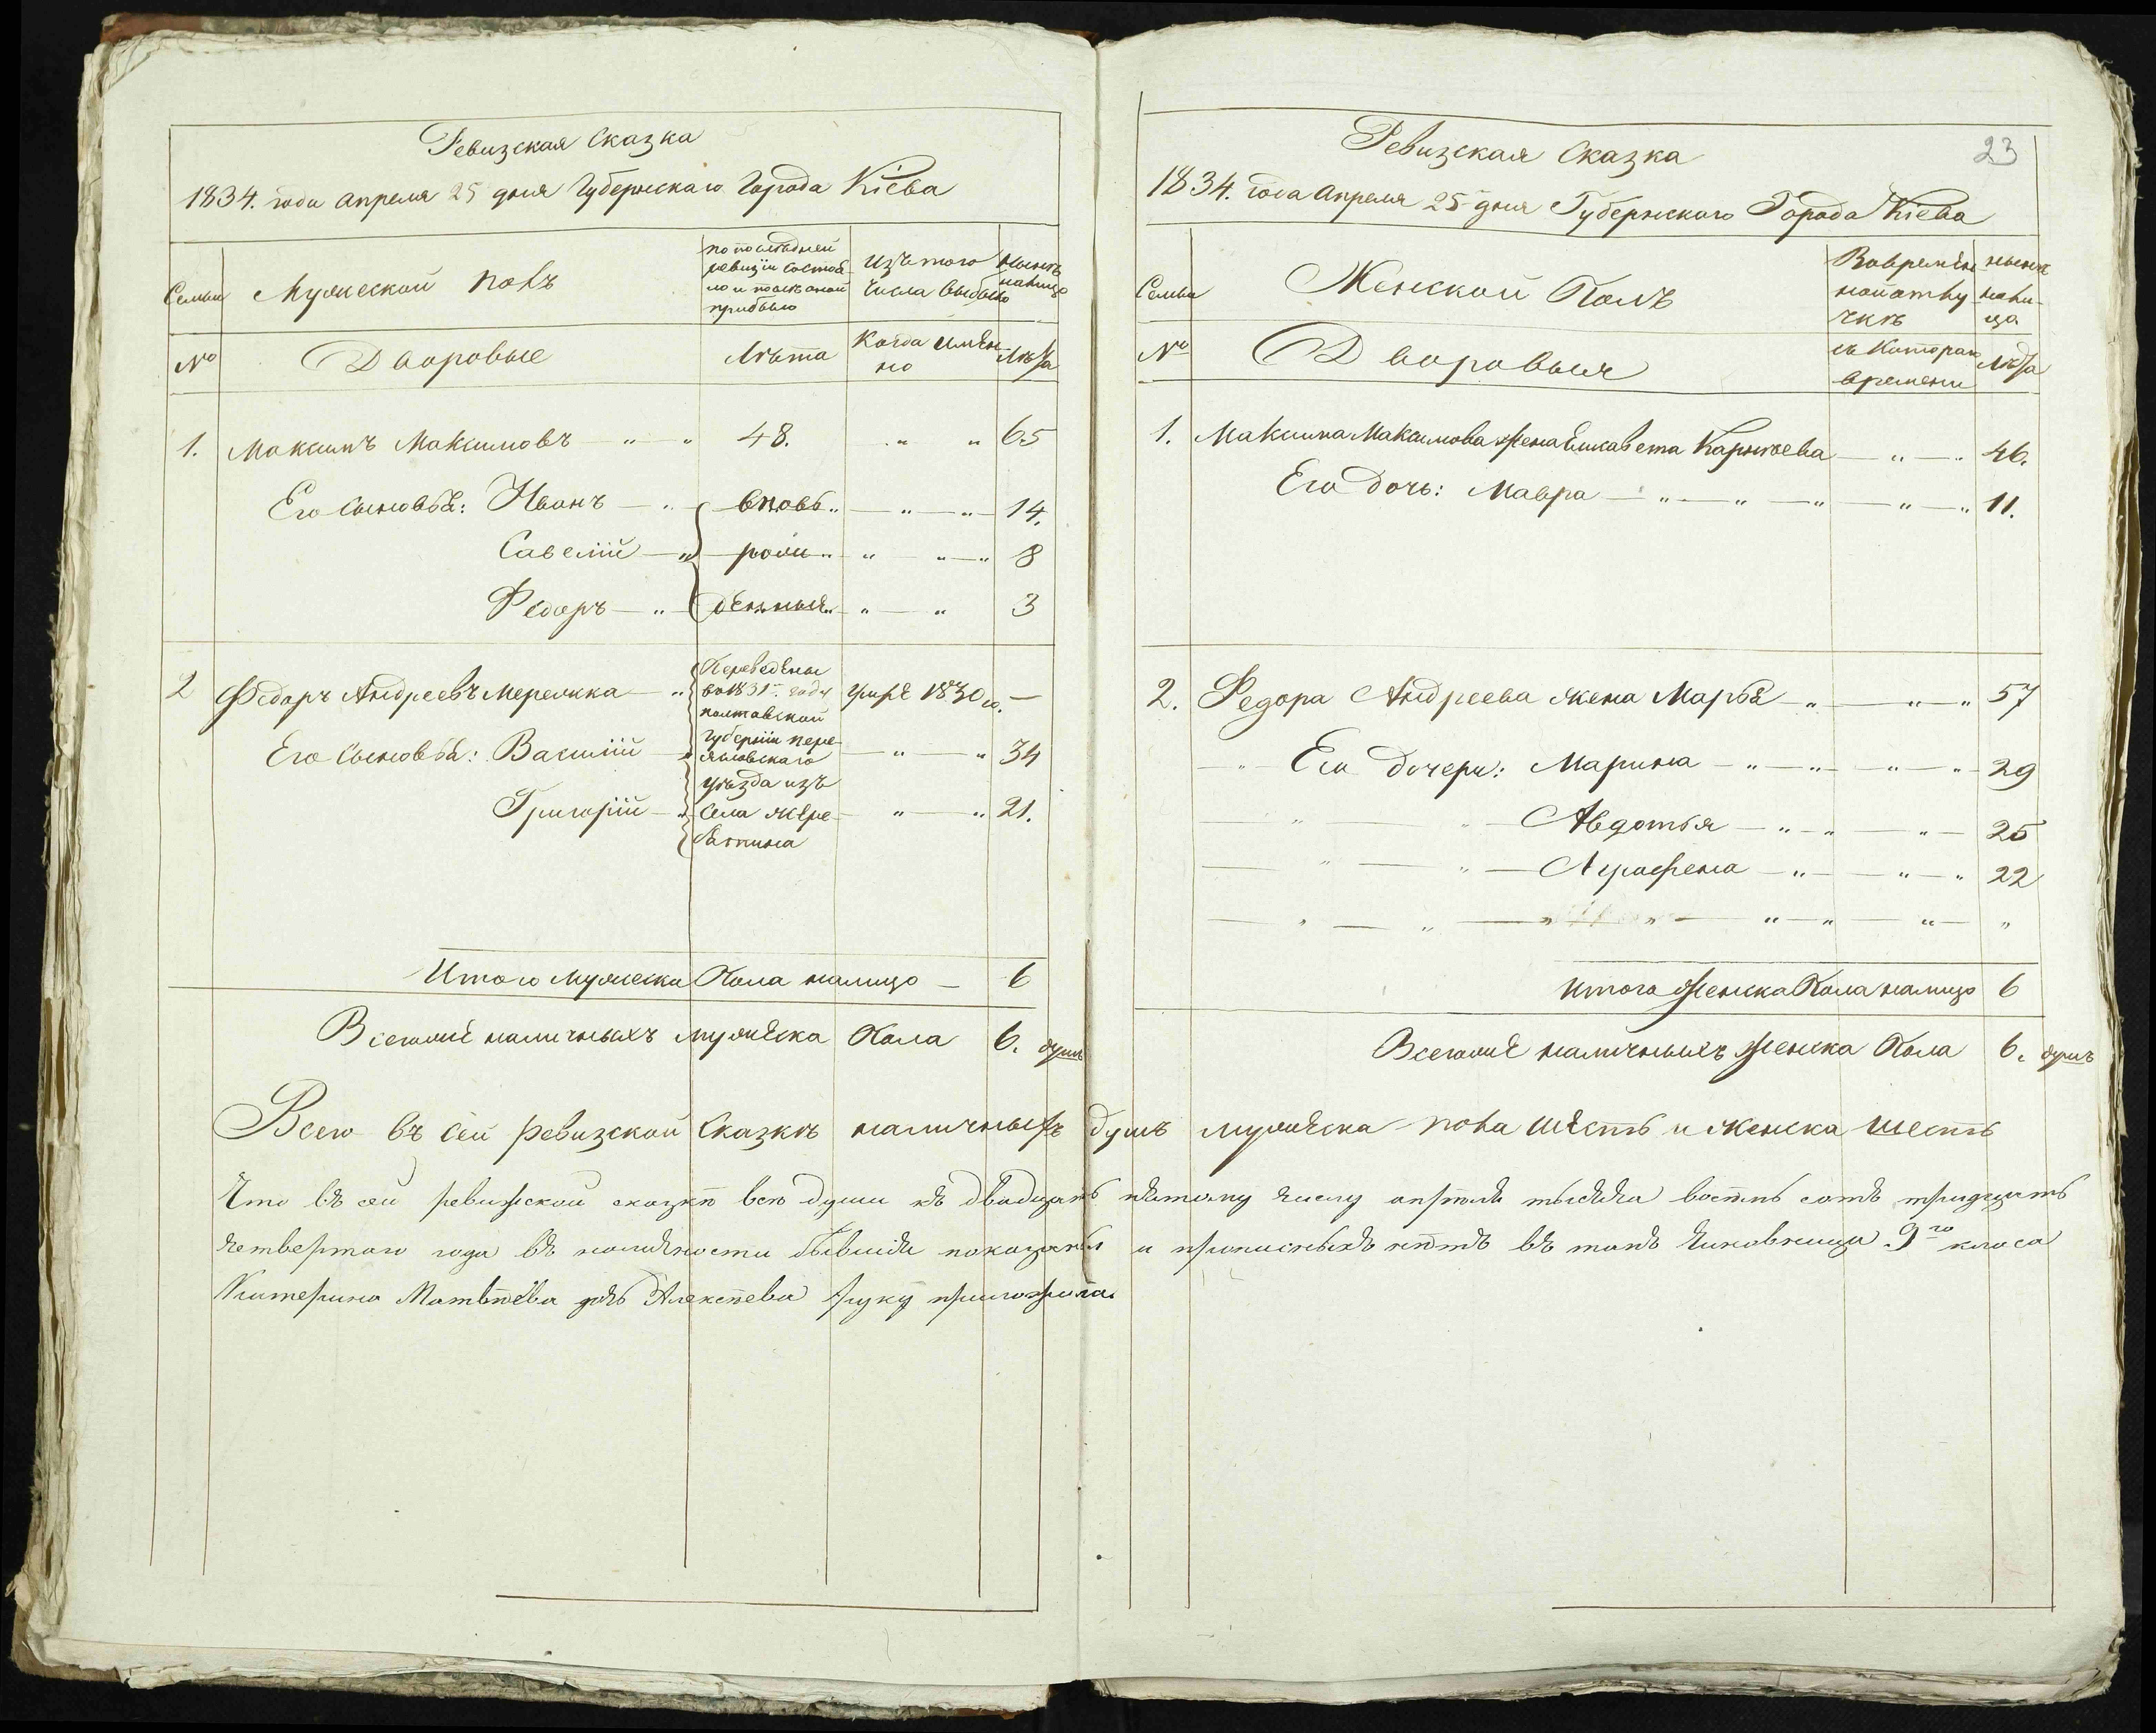 Ревизская Сказка
1834. года апреля 25 дня Губернскаго Города Кіева
Семьи
Мужеской полъ
по последней
ревизіи состоя
ло и послѣ оной
прибыло
Изъ того
числа выбыло
нынѣ
налицо
№
Дворовые
Лѣта
Когда имен
но
Лѣта
1. Максимъ Максимовъ 48. 65
Его сыновья: Иванъ вновь 14.
Савелій рож 8
Федоръ денныя 3
2 Федоръ Андреевъ Мережка умре 1830 го.
Переведены
во 1831. году
полтавской
губерніи пере
яловскаго
уѣзда изъ
села
Его сыновья: Василій 34
Григорій 21.
Итого мужеска Пола налицо 6
Всего наличныхъ мужеска Пола 6. душъ
23
Ревизская Сказка
1834. года Апреля 25 дня Губернскаго Города Кіева
Семьи
Женской Полъ
Вовремен
ной отлу
чкѣ
нынѣ
нали
цо
№
Дворовыя
съ Котораго
времени
Лѣта
1. Максима Максимова жена Елисавета Карнѣева 46.
Его дочь: Мавра 11.
2. Федора Андреева жена Марья 57
Его дочери: Марина 29
Авдотья 25
Аграфена 22
Итого женска Пола налицо 6
Всего наличныхъ женска Пола 6. душъ
Всего въ сей ревизской Сказкѣ наличныхъ душъ мужеска пола шесть и женска шесть
Что въ сей ревизской сказкѣ всѣ души къ двадцать пятому числу апрѣля тысяча восемь сотъ тридцать
четвертаго года въ наличности бывшія показаны и прописныхъ нѣтъ въ томъ чиновница 9го класа
Катерина Матвѣева дочь Алексѣева руку приложила